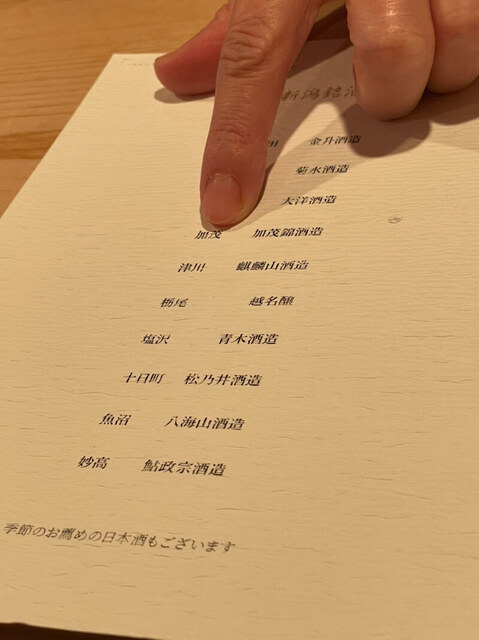 新潟銘酒
田 金升酒造
菊水酒造
大洋酒造
加茂 加茂錦酒造
津川 麒麟山酒造
栃尾 越銘醸
塩沢 青木酒造
十日町 松乃井酒造
魚沼 八海山酒造
妙高 鮎政宗酒造
季節のお薦めの日本酒もございます